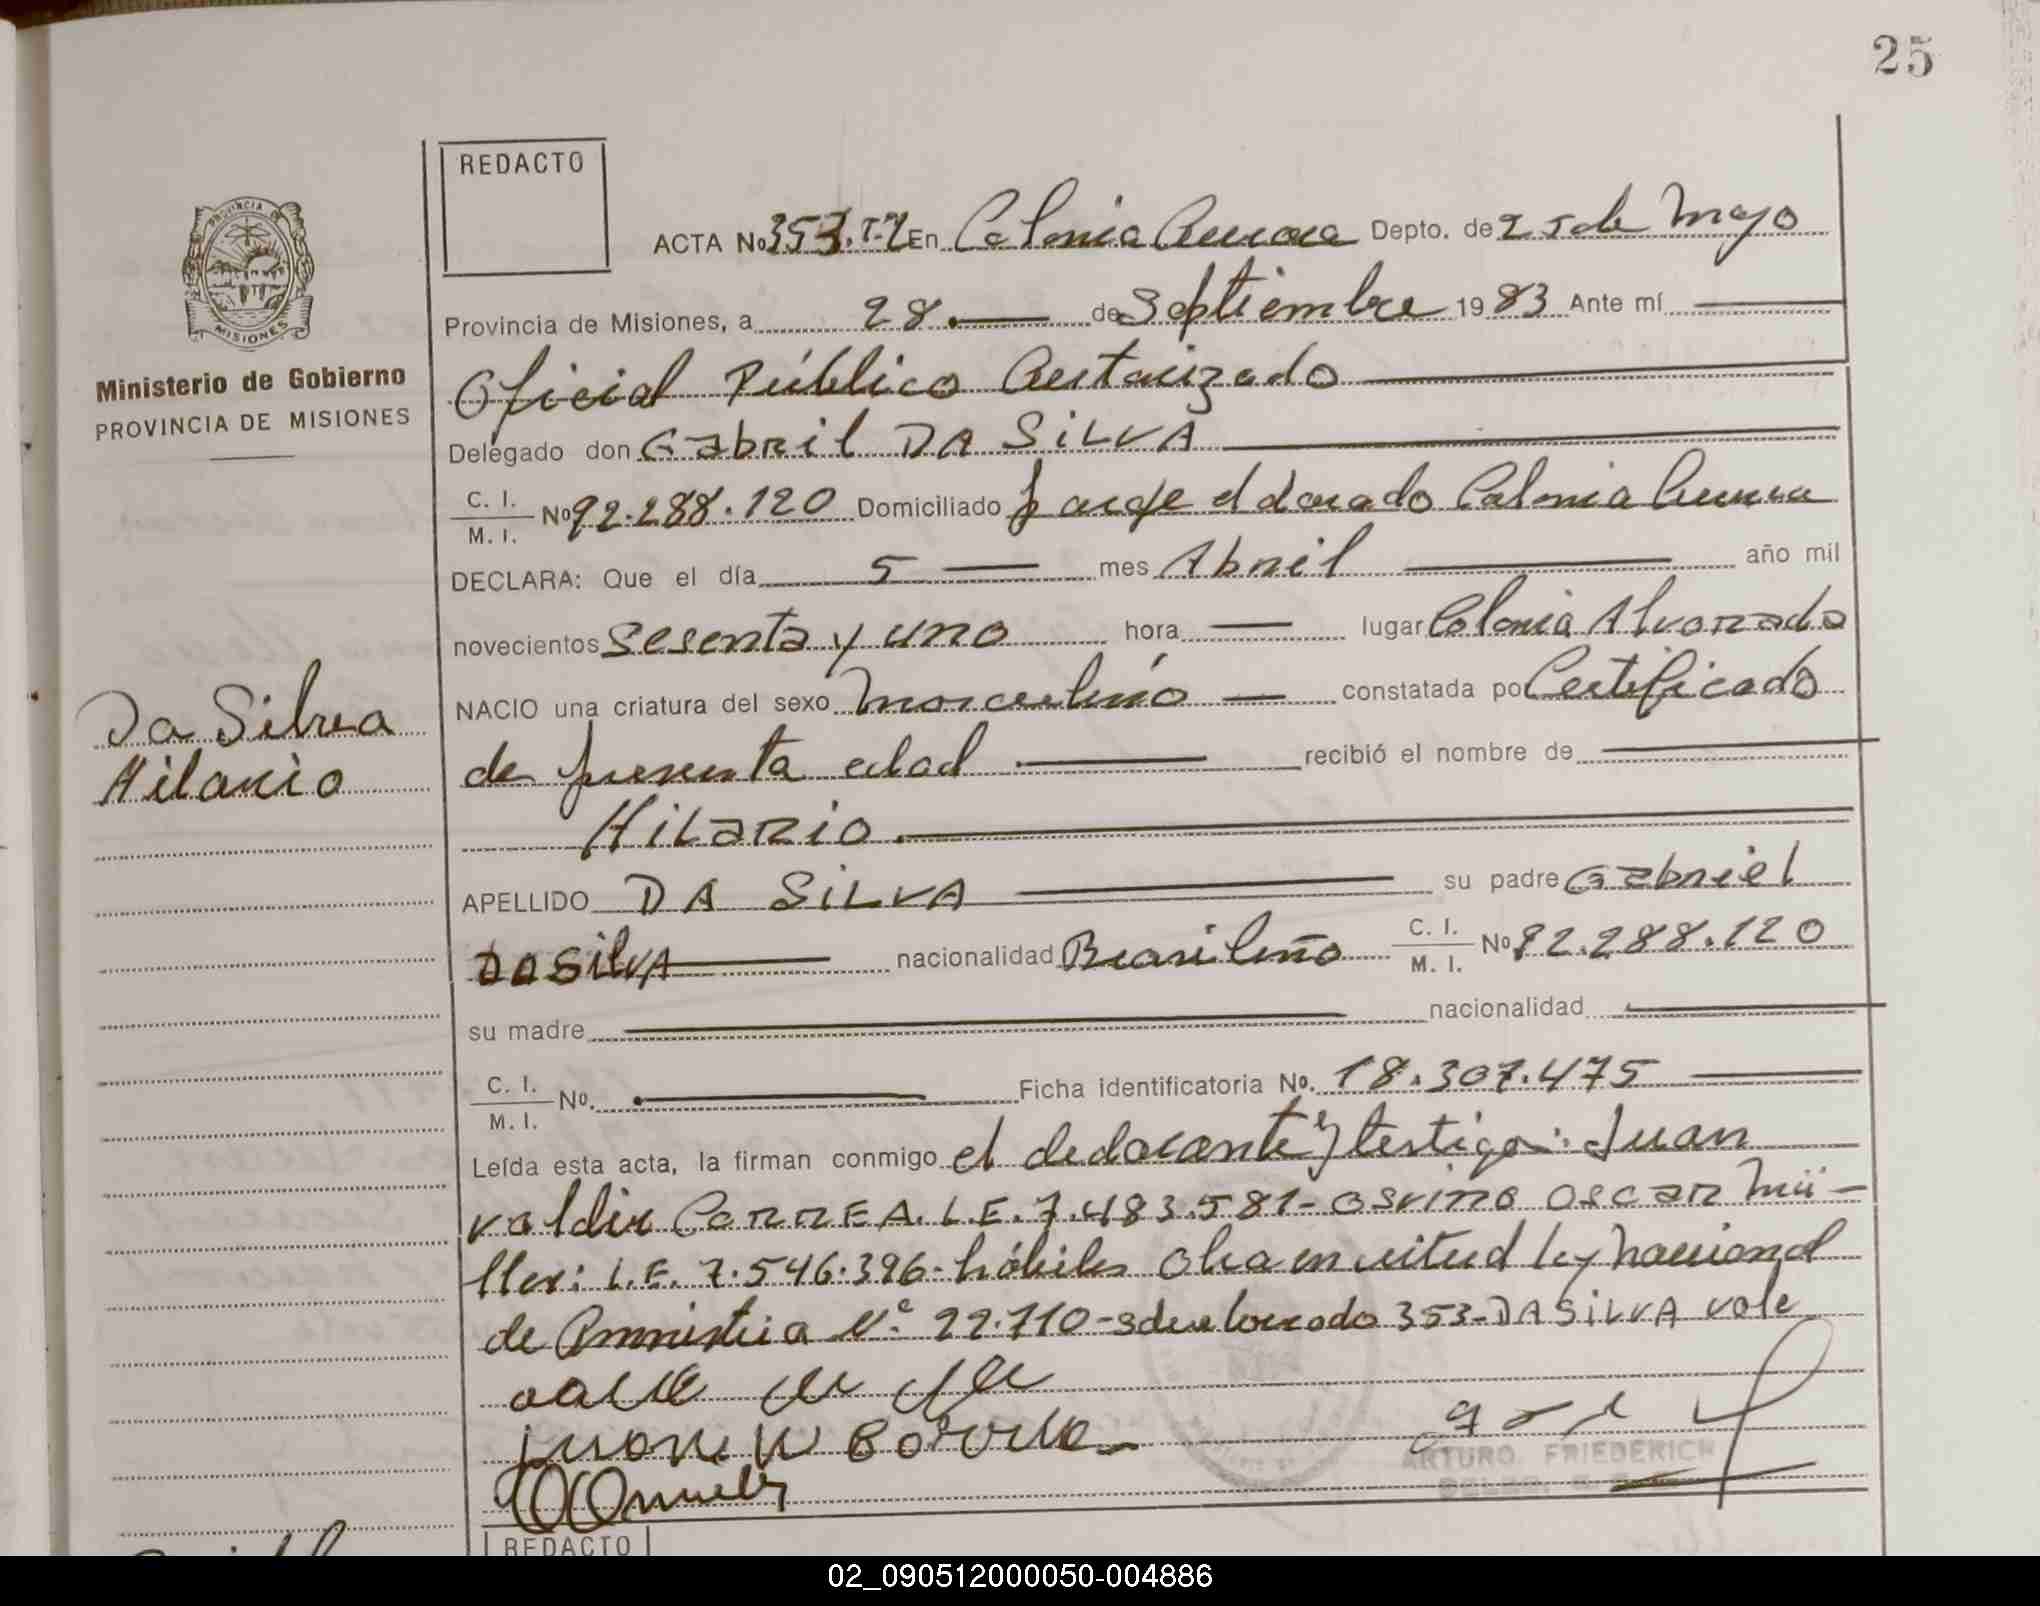 25
REDACTO
PROVINCIA DE
MISIONES
Ministerio de Gobierno
PROVINCIA DE MISIONES
ACTA No 353.T-2 En Colonia Aurora Depto. de 25 de Mayo
Provincia de Misiones, a 28. de Septiembre 1983 Ante mí
Oficial Público Autorizado
Delegado don Gabriel DA SILVA
C. I. M. I. No 92.288.120 Domiciliado Paraje eldorado Colonia Aurora
DECLARA: Que el día 5 mes Abril año mil
novecientos sesenta y uno hora lugar Colonia Alvorada
NACIO una criatura del sexo masculino constatada por Certificado
de presunta edad recibió el nombre de
Da Silva
Hilario
Hilario.
APELLIDO DA SILVA su padre Gabriel
DA SILVA nacionalidad Brasileño C. I. M. I. No 92.288.120
su madre nacionalidad
C. I. M. I. No. Ficha identificatoria No. 18.307.475
Leída esta acta, la firman conmigo el declarante y testigos: Juan
valdir CORREA. L.E. 7.483.581- osvino oscar Mü-
ller: L.E. 7.546.396- hábiles en virtud ley nacional
de Amnistia N° 22.710- 353-DA SILVA vale
ARTURO FRIEDERICH
REDACTO
02_090512000050-004886